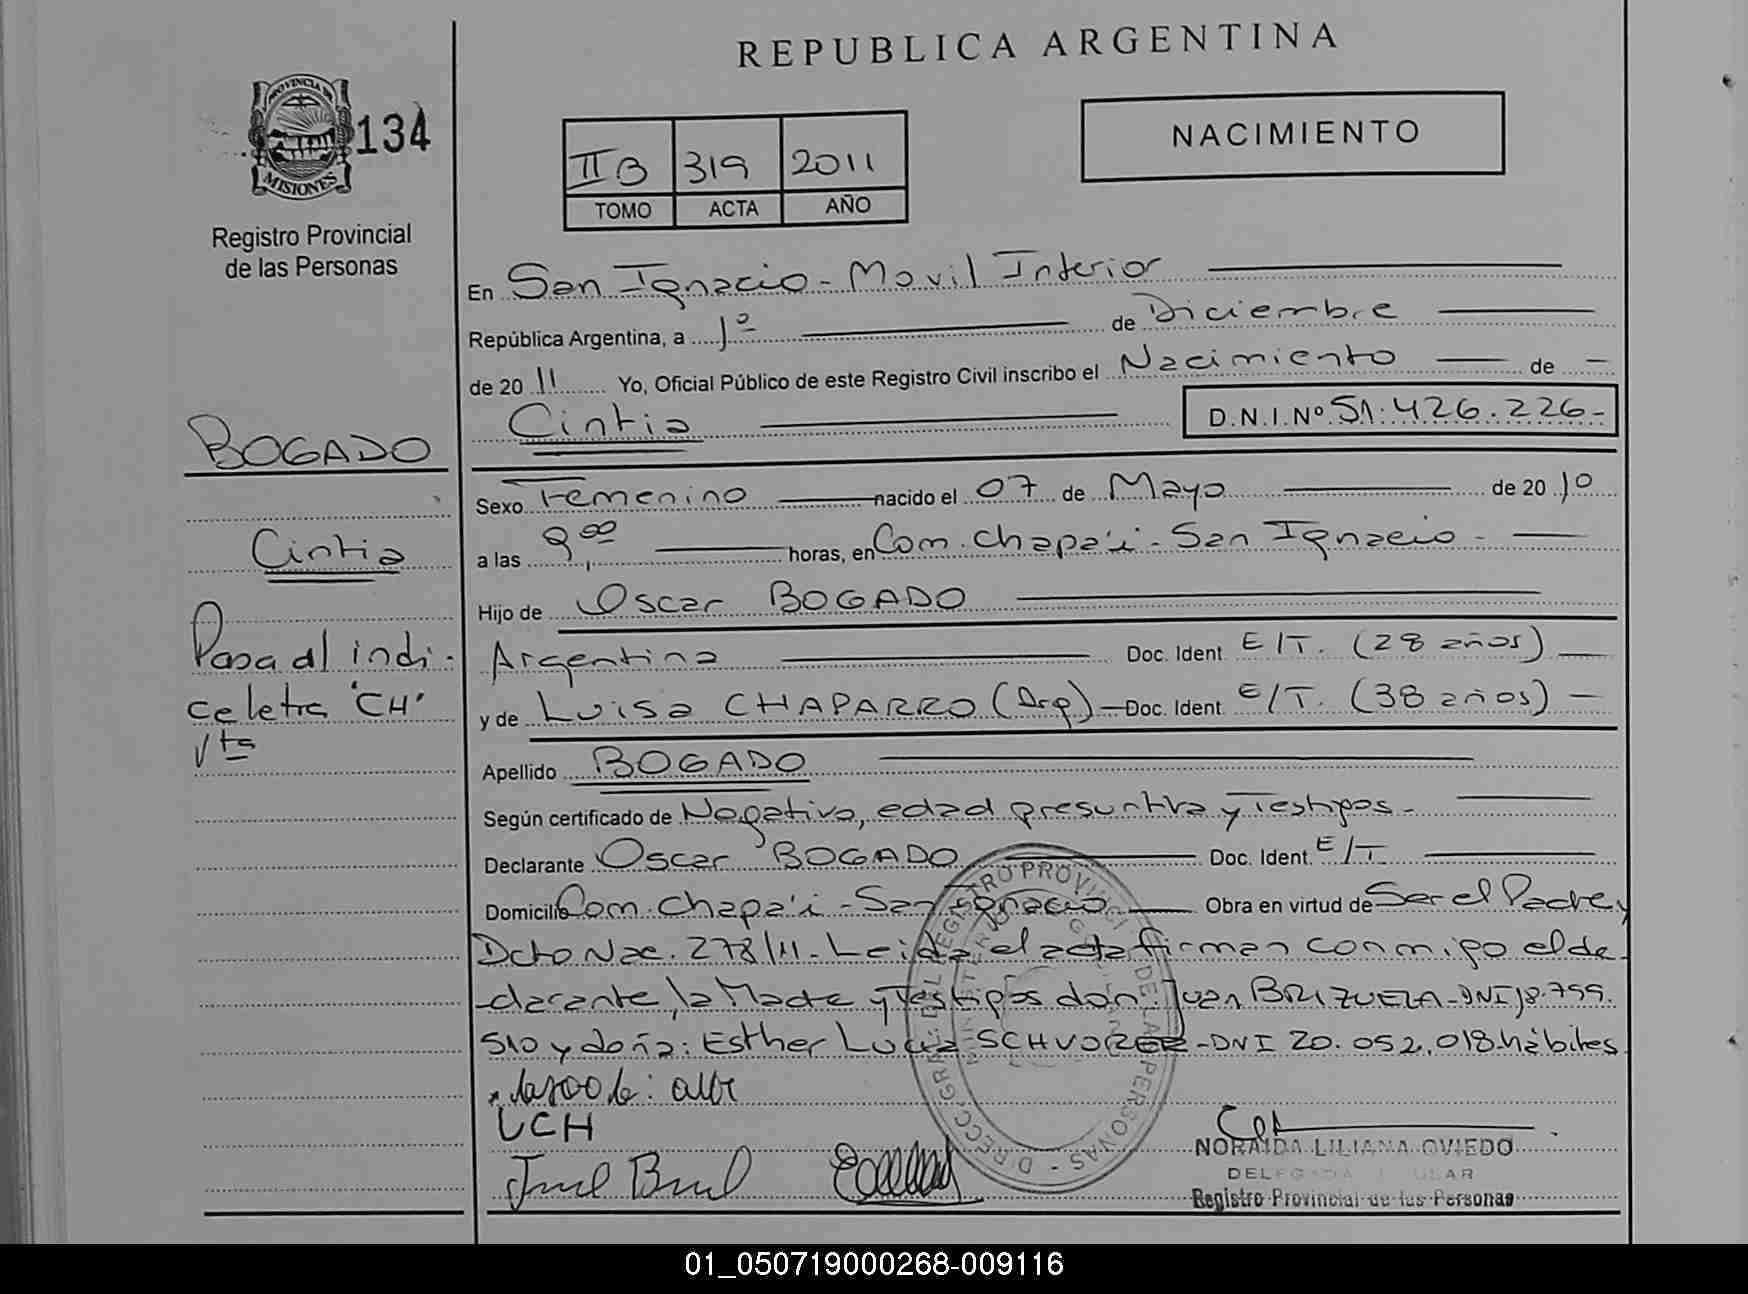 REPUBLICA ARGENTINA
PROVINCIA DE
MISIONES
134
Registro Provincial
de las Personas
II B 319 2011
TOMO ACTA AÑO
NACIMIENTO
En San Ignacio - Movil Interior
República Argentina, a 1º de Diciembre
de 20 11 Yo, Oficial Público de este Registro Civil inscribo el Nacimiento de
Cintia D.N.I.Nº 51.426.226-
BOGADO
Cintia
Pasa al indi-
ce letra "CH"
Vta
Sexo Femenino nacido el 07 de Mayo de 20 10
a las 9,00 horas, en Com. Chapa'i - San Ignacio -
Hijo de Oscar BOGADO
Argentina Doc. Ident. E/T. (28 años)
y de Luisa CHAPARRO (Arg) Doc. Ident. E/T. (38 años)
Apellido BOGADO
Según certificado de Negativo, edad presuntiva y Testigos-
Declarante Oscar BOGADO Doc. Ident. E/T
Domicilio Com. Chapa'i - San Ignacio Obra en virtud de Ser el Padre y
Dcto Nac. 278/11- Leida el acta firman conmigo el de
clarante, la Madre y Testigos don: Juan BRIZUELA-DNI 18.799.
510 y doña: Esther Lucia SCHVORER-DNI 20.052.018 hábiles
LCH
NORAIDA LILIANA OVIEDO
Registro Provincial de las Personas
01_050719000268-009116